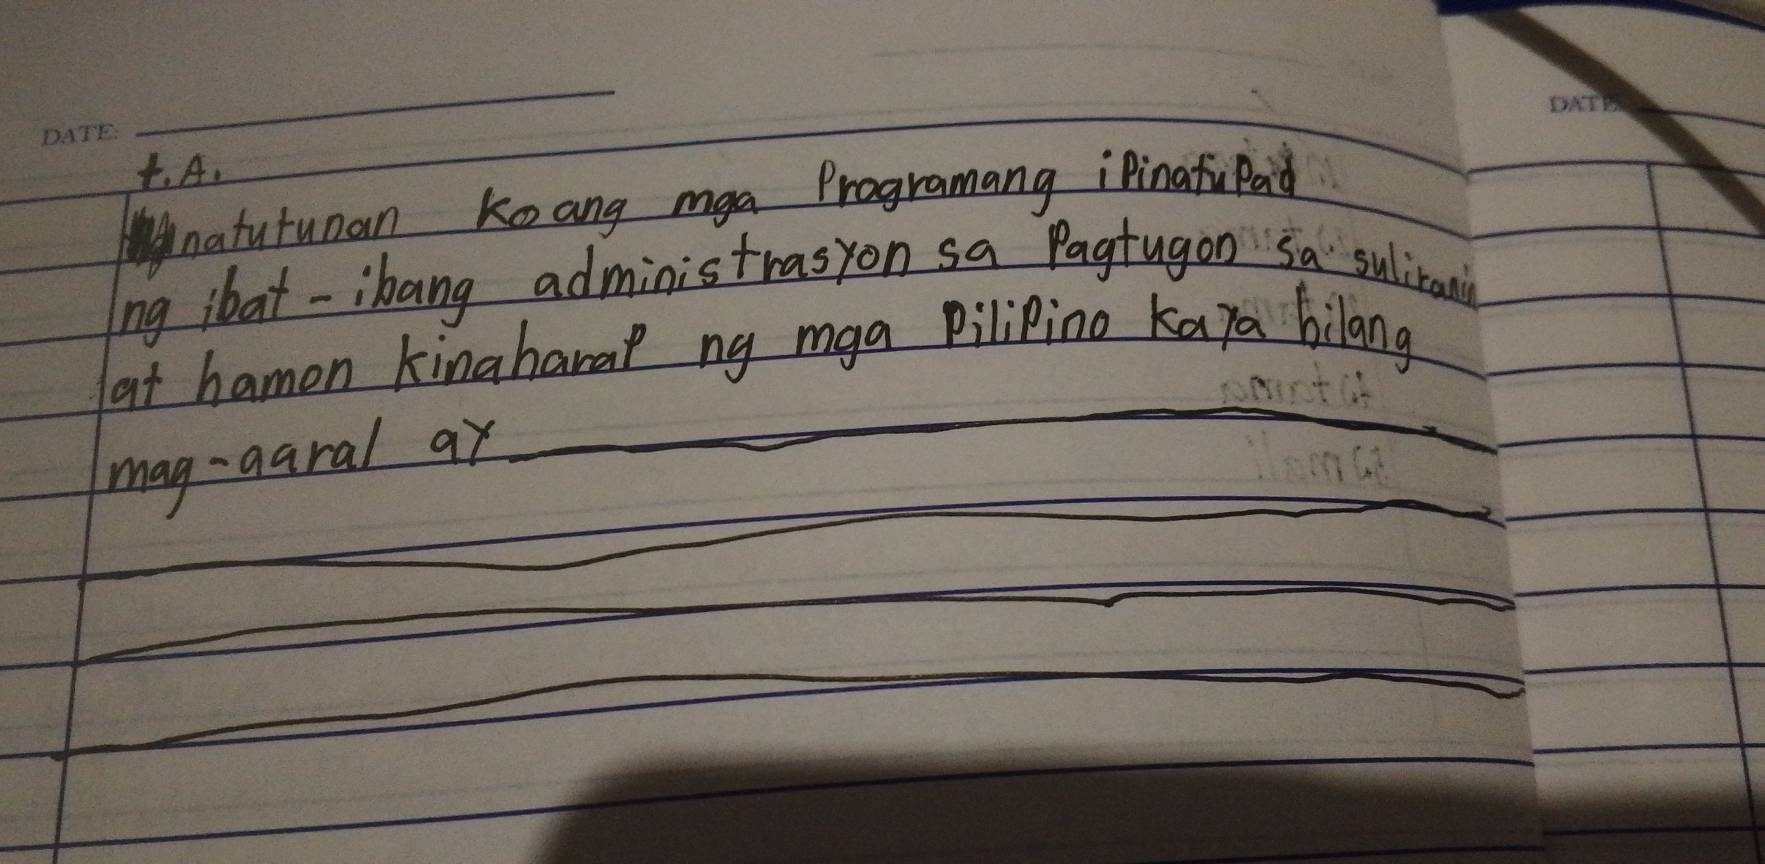 DATE:
DATE
t.A.
natutunan ko ang mga Programang iPinatuPad
ng ibat-ibang administrasyon sa Pagtugon sa suliranin
at hamon kinaharaP ng mga PiliPino kaya bilang
mag-aaral ay